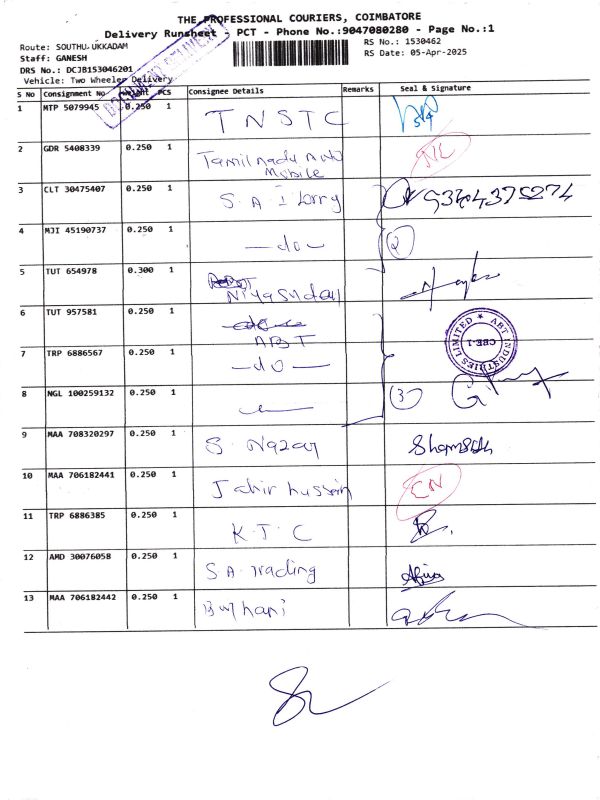 THE PROFESSIONAL COURIERS, COIMBATORE
Delivery Runsheet - PCT - Phone No.:9047080280 - Page No.:1
Route: SOUTHU.UKKADAM
RS No.: 1530462
Staff: GANESH
RS Date: 05-Apr-2025
DRS No.: DCJB153046201
Vehicle: Two Wheeler Delivery
S No Consignment No Weight PCS Consignee Details Remarks Seal & Signature
1 MTP 5079945 0.250 1 TNSTC
2 GDR 5408339 0.250 1 Tamilnadu Auto Mobile NL
3 CLT 30475407 0.250 1 S.A.I Lorry
4 MJI 45190737 0.250 1 -do- 2
5 TUT 654978 0.300 1
6 TUT 957581 0.250 1 ABT
ABT INDUSTRIES LIMITED ★ CBE-1
7 TRP 6886567 0.250 1 -do-
8 NGL 100259132 0.250 1 3
9 MAA 708320297 0.250 1 S. Nazar
10 MAA 706182441 0.250 1 Jahir hussain EN
11 TRP 6886385 0.250 1 K.T.C
12 AMD 30076058 0.250 1 S.A. Trading
13 MAA 706182442 0.250 1